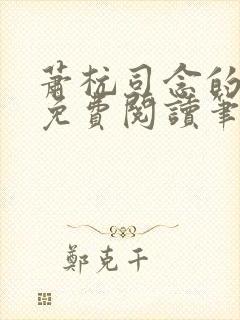 蕭杭司念的
免費閱讀筆
鄭克千